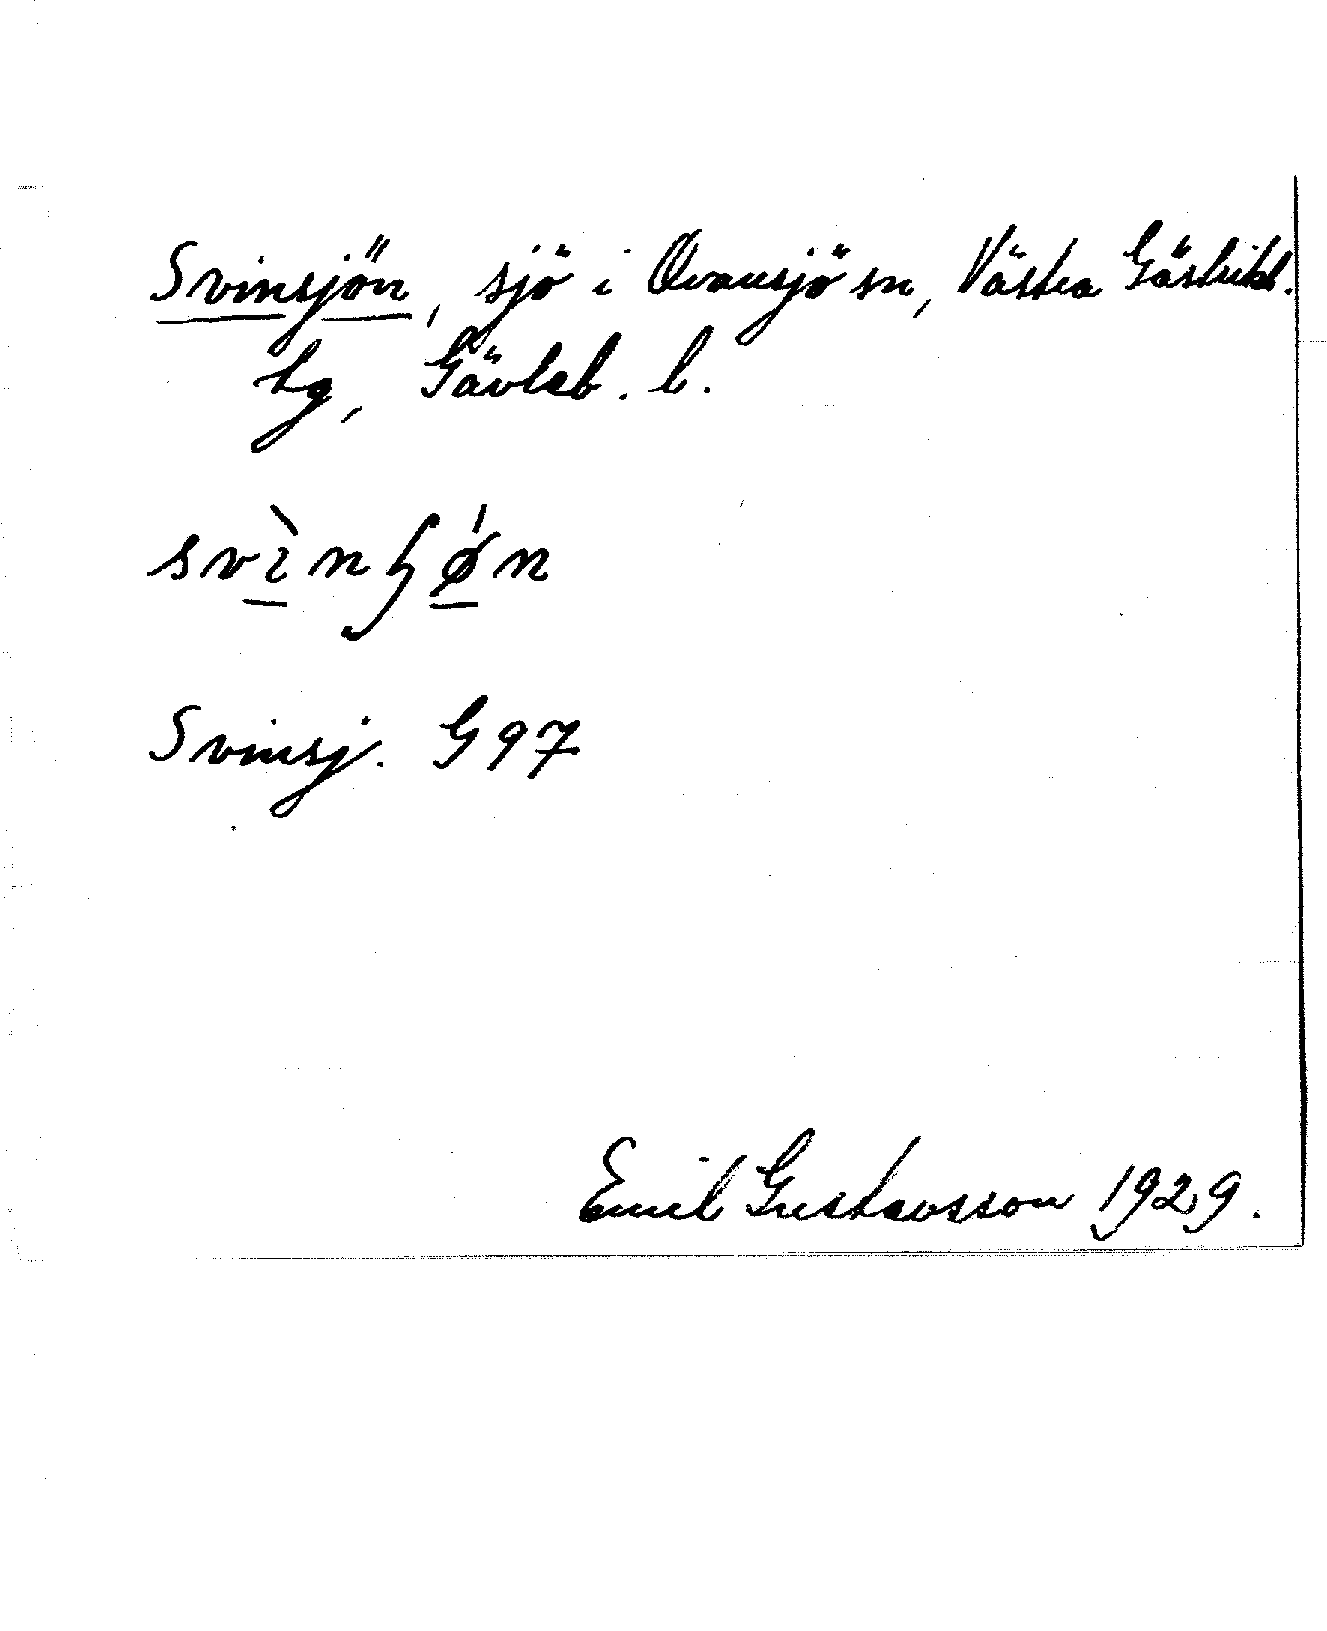 Svinsjön, sjö i Ovansjö sn, Västra Gästrikl.
tg, Gävleb. l.
svìnʃǿn
Svinsj. G 97
Emil Gustavsson 1929.